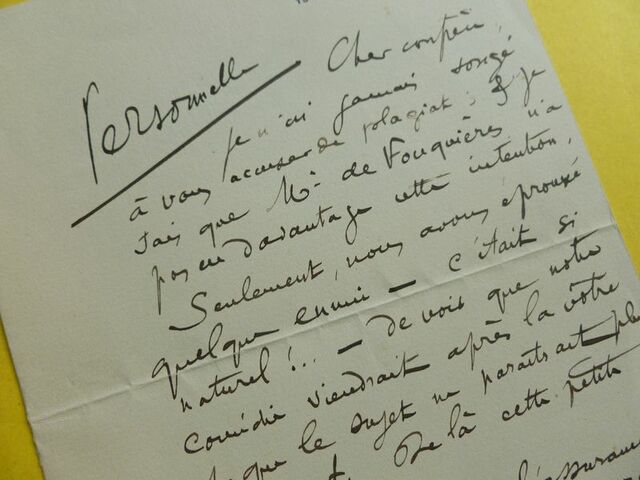 Personnelle
Cher confrère,
Je n'ai jamais songé
à vous accuser de plagiat; & je
sais que Mr de Fouquières n'a
pas eu davantage cette intention.
Seulement, nous avons éprouvé
quelque ennui — c'était si
naturel!.. — de voir que notre
comédie viendrait après la vôtre
que le sujet ne paraitrait plus
De là cette petite